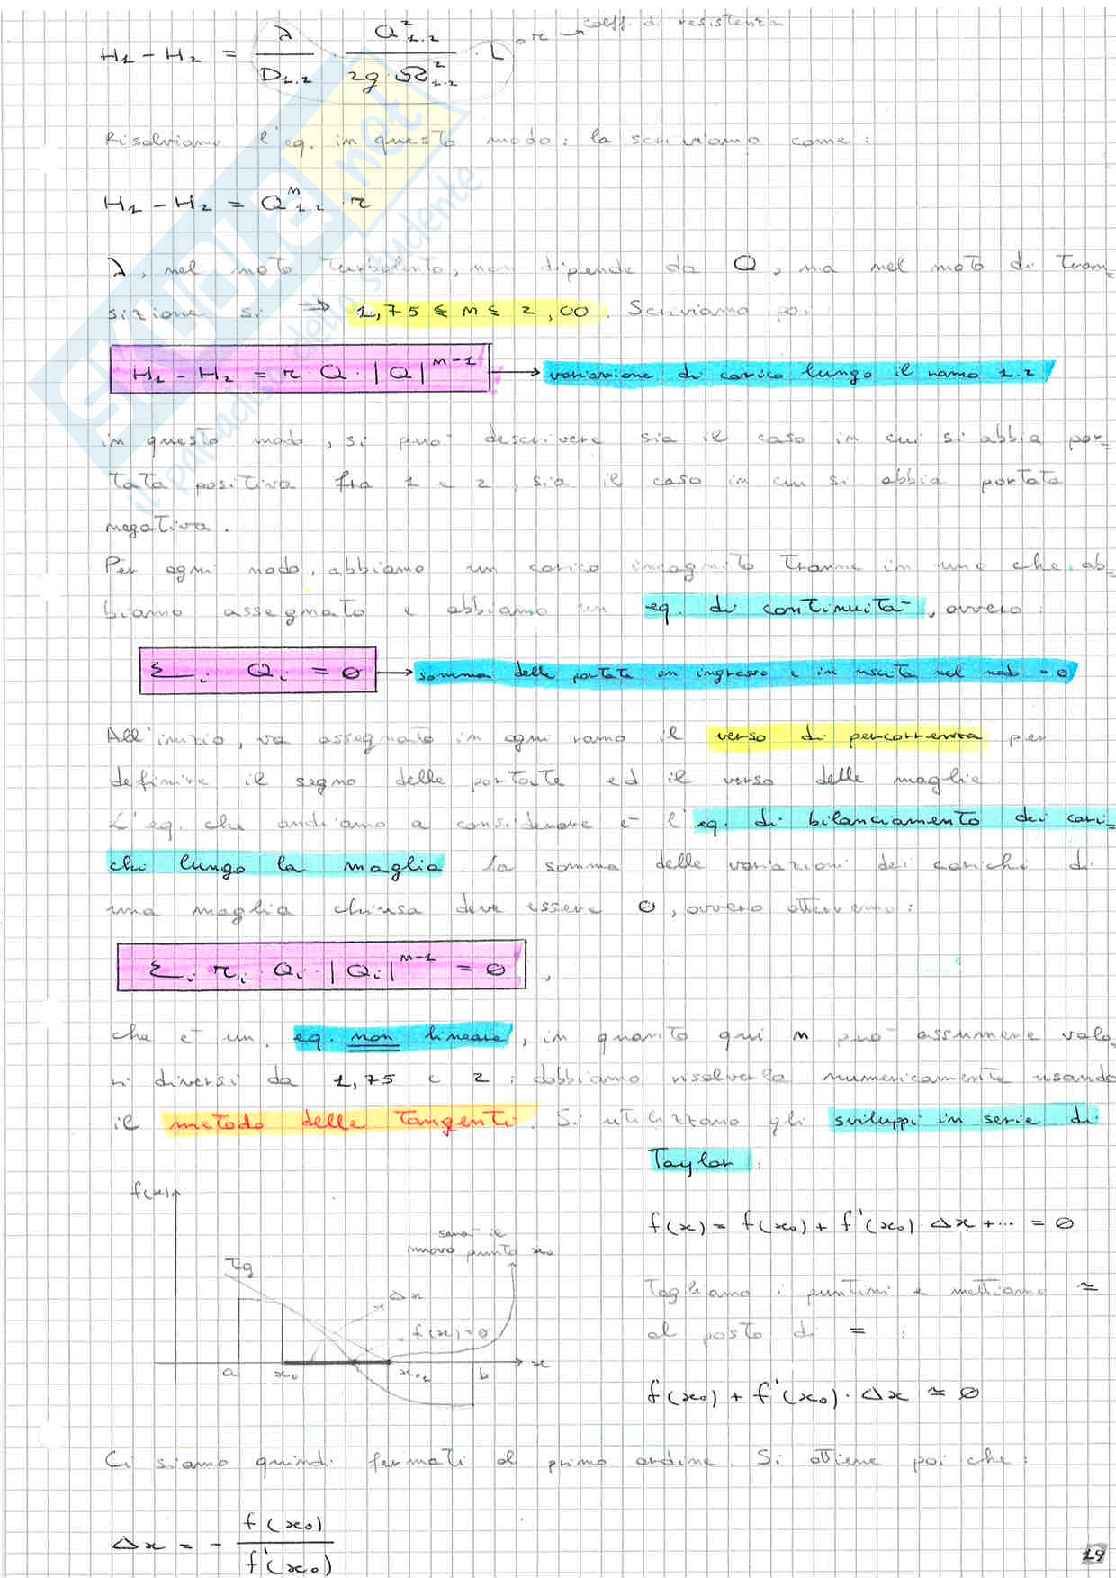 H₁ - H₂ = λ/D₁.₂ · Q²₁.₂/2g·Ω²₁.₂ · L → r → coeff. di resistenza
Risolviamo l'eq. in questo modo: la scriviamo come:
H₁ - H₂ = Qᵐ₁.₂ · r
λ, nel moto turbolento, non dipende da Q, ma nel moto di tran-
sizione sì ⇒ 1,75 ≤ m ≤ 2,00. Scriviamo poi
H₁ - H₂ = r Q · |Q|ᵐ⁻¹ → variazione di carico lungo il ramo 1.2
in questo modo, si può descrivere sia il caso in cui si abbia por-
tata positiva fra 1 e 2, sia il caso in cui si abbia portata
negativa.
Per ogni nodo, abbiamo un carico incognito tranne in uno che ab-
biamo assegnato e abbiamo un eq. di continuità, ovvero:
Σᵢ Qᵢ = 0 → somma delle portate in ingresso e in uscita nel nodo = 0
All'inizio, va assegnato in ogni ramo il verso di percorrenza per
definire il segno delle portate ed il verso delle maglie
L'eq. che andiamo a considerare è l'eq. di bilanciamento dei cari-
chi lungo la maglia la somma delle variazioni dei carichi di
una maglia chiusa deve essere 0, ovvero otterremo:
Σᵢ rᵢ · Qᵢ · |Qᵢ|ᵐ⁻¹ = 0,
che è un. eq. non lineare, in quanto qui m può assumere valo-
ri diversi da 1,75 e 2: dobbiamo risolverla numericamente usando
il metodo delle tangenti. Si utilizzano gli sviluppi in serie di
Taylor:
f(x)
f(x) = f(x₀) + f'(x₀) · Δx + ... = 0
sarà il
nuovo punto x₀
Tg
Δx
Togliamo i puntini e mettiamo ≃
f(x)=0
al posto di = :
a x₀ x₀₂ b x
f(x₀) + f'(x₀) · Δx ≃ 0
Ci siamo quindi fermati al primo ordine. Si ottiene poi che:
Δx = - f(x₀)/f'(x₀)
19